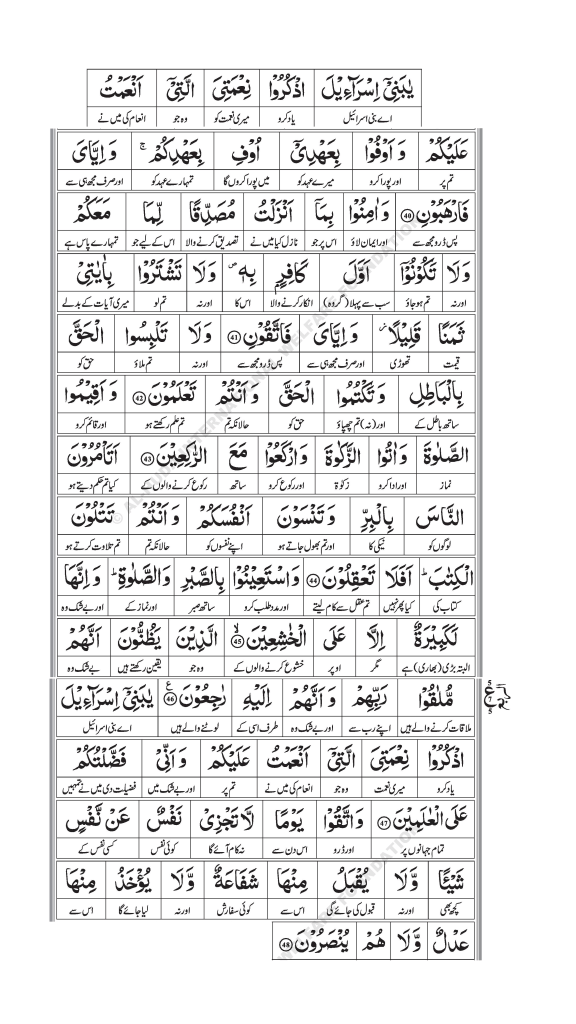 يٰبَنِيْۤ اِسْرَآءِيْلَ اذْكُرُوْا نِعْمَتِيَ الَّتِيْۤ اَنْعَمْتُ
اے بنی اسرائیل یاد کرو میری نعمت کو وہ جو انعام کی میں نے
عَلَيْكُمْ وَ اَوْفُوْا بِعَهْدِيْۤ اُوْفِ بِعَهْدِكُمْ ۚ وَ اِيَّايَ
تم پر اور پورا کرو میرے عہد کو میں پورا کروں گا تمہارے عہد کو اور صرف مجھ ہی سے
فَارْهَبُوْنِ 40 وَ اٰمِنُوْا بِمَاۤ اَنْزَلْتُ مُصَدِّقًا لِّمَا مَعَكُمْ
پس ڈرو مجھ سے اور ایمان لاؤ اس پر جو نازل کیا میں نے تصدیق کرنے والا اس کے لیے جو تمہارے پاس ہے
وَلَا تَكُوْنُوْۤا اَوَّلَ كَافِرٍۭ بِهٖ ۪ وَلَا تَشْتَرُوْا بِاٰيٰتِيْ
اور نہ تم ہو جاؤ سب سے پہلا (گروہ) انکار کرنے والا اس کا اور نہ تم لو میری آیات کے بدلے
ثَمَنًا قَلِيْلًا ۫ وَ اِيَّايَ فَاتَّقُوْنِ 41 وَلَا تَلْبِسُوا الْحَقَّ
قیمت تھوڑی اور صرف مجھ ہی سے پس ڈرو مجھ سے اور نہ تم ملاؤ حق کو
بِالْبَاطِلِ وَ تَكْتُمُوا الْحَقَّ وَ اَنْتُمْ تَعْلَمُوْنَ 42 وَ اَقِيْمُوا
ساتھ باطل کے اور (نہ) تم چھپاؤ حق کو حالانکہ تم تم علم رکھتے ہو اور قائم کرو
الصَّلٰوةَ وَ اٰتُوا الزَّكٰوةَ وَ ارْكَعُوْا مَعَ الرّٰكِعِيْنَ 43 اَتَاْمُرُوْنَ
نماز اور ادا کرو زکوٰۃ اور رکوع کرو ساتھ رکوع کرنے والوں کے کیا تم حکم دیتے ہو
النَّاسَ بِالْبِرِّ وَ تَنْسَوْنَ اَنْفُسَكُمْ وَ اَنْتُمْ تَتْلُوْنَ
لوگوں کو نیکی کا اور تم بھول جاتے ہو اپنے نفسوں کو حالانکہ تم تم تلاوت کرتے ہو
الْكِتٰبَ ؕ اَفَلَا تَعْقِلُوْنَ 44 وَ اسْتَعِيْنُوْا بِالصَّبْرِ وَ الصَّلٰوةِ ؕ وَ اِنَّهَا
کتاب کی کیا پھر نہیں تم عقل سے کام لیتے اور مدد طلب کرو ساتھ صبر اور نماز کے اور بے شک وہ
لَكَبِيْرَةٌ اِلَّا عَلَى الْخٰشِعِيْنَ 45 ۙ الَّذِيْنَ يَظُنُّوْنَ اَنَّهُمْ
البتہ بڑی (بھاری) ہے مگر اوپر خشوع کرنے والوں کے وہ جو یقین رکھتے ہیں بے شک وہ
مُّلٰقُوْا رَبِّهِمْ وَ اَنَّهُمْ اِلَيْهِ رٰجِعُوْنَ 46 ع يٰبَنِيْۤ اِسْرَآءِيْلَ
ملاقات کرنے والے ہیں اپنے رب سے اور بے شک وہ طرف اسی کے لوٹنے والے ہیں اے بنی اسرائیل
اذْكُرُوْا نِعْمَتِيَ الَّتِيْۤ اَنْعَمْتُ عَلَيْكُمْ وَ اَنِّيْ فَضَّلْتُكُمْ
یاد کرو میری نعمت وہ جو انعام کی میں نے تم پر اور بے شک میں فضیلت دی میں نے تمہیں
عَلَى الْعٰلَمِيْنَ 47 وَ اتَّقُوْا يَوْمًا لَّا تَجْزِيْ نَفْسٌ عَنْ نَّفْسٍ
تمام جہانوں پر اور ڈرو اس دن سے نہ کام آئے گا کوئی نفس کسی نفس کے
شَيْـًٔا وَّلَا يُقْبَلُ مِنْهَا شَفَاعَةٌ وَّلَا يُؤْخَذُ مِنْهَا
کچھ بھی اور نہ قبول کی جائے گی اس سے کوئی سفارش اور نہ لیا جائے گا اس سے
عَدْلٌ وَّلَا هُمْ يُنْصَرُوْنَ 48